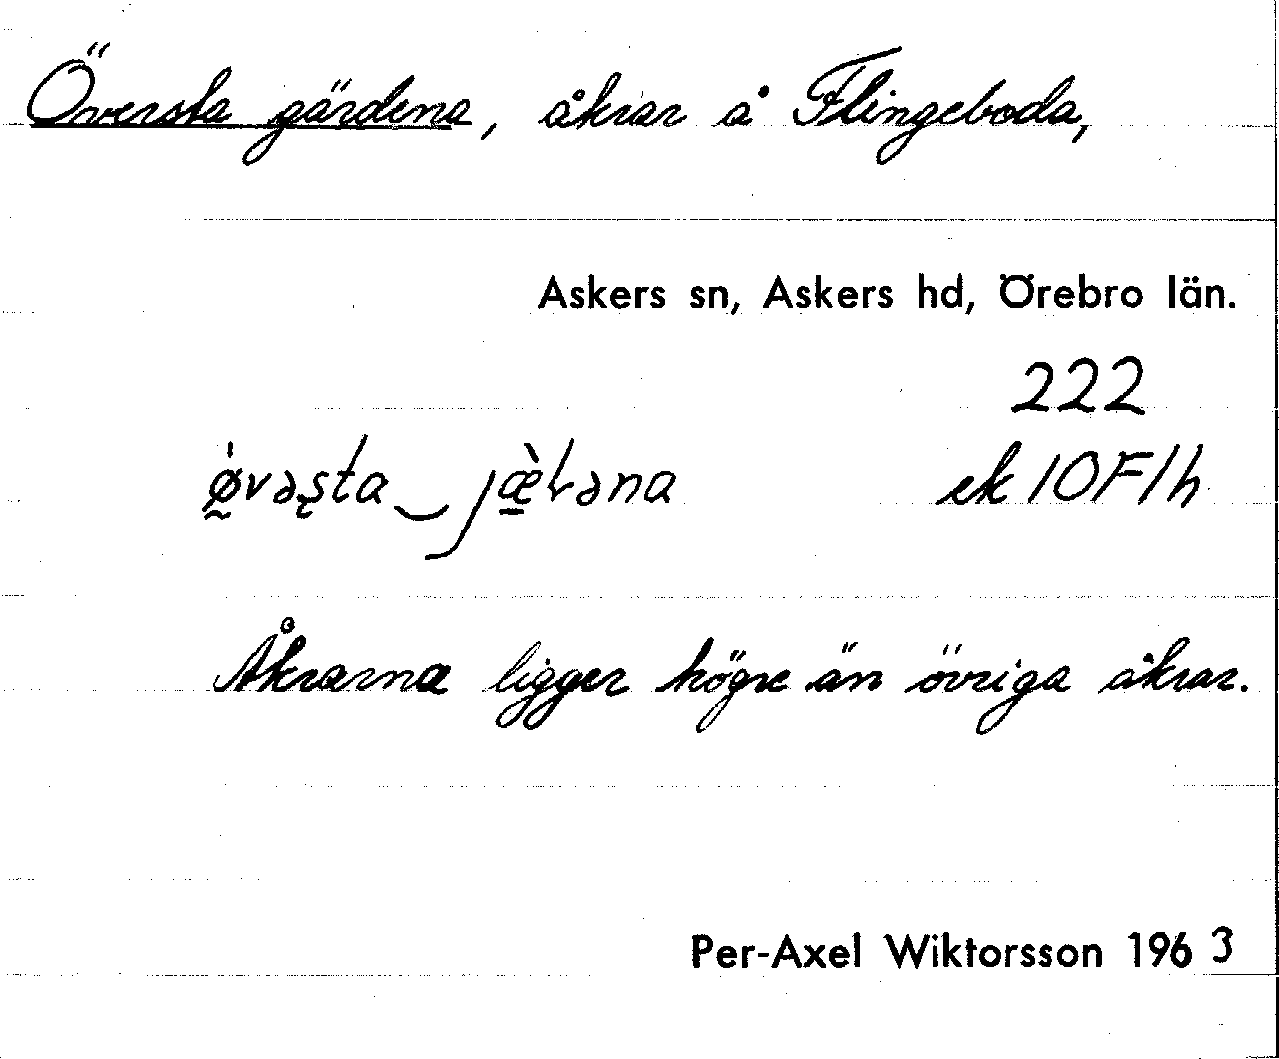 Översta gärdena, åkrar å Flingeboda,
Askers sn, Askers hd, Örebro län.
222
ǿvəʂta‿jæ̀ɽəna ek 10F1h
Åkrarna ligger högre än övriga åkrar.
Per-Axel Wiktorsson 1963